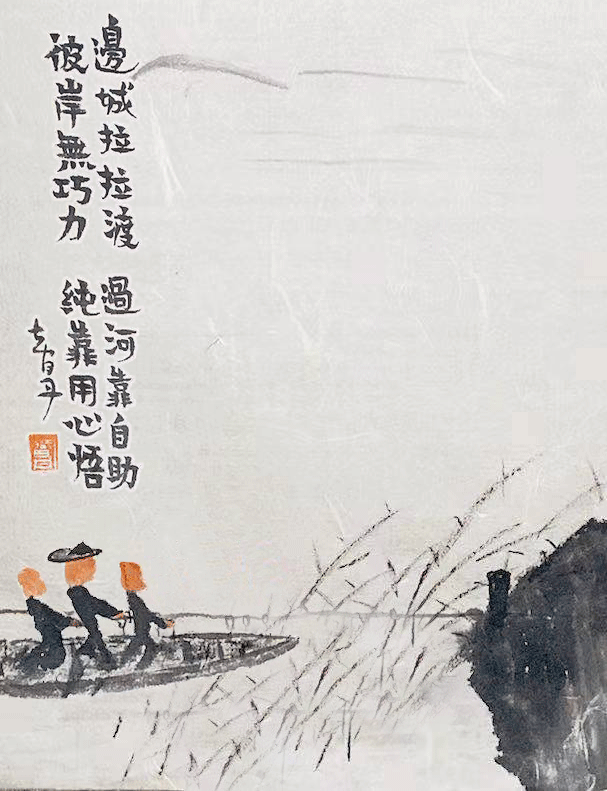 邊城拉拉渡 過河靠自助
彼岸無巧力 純靠用心悟